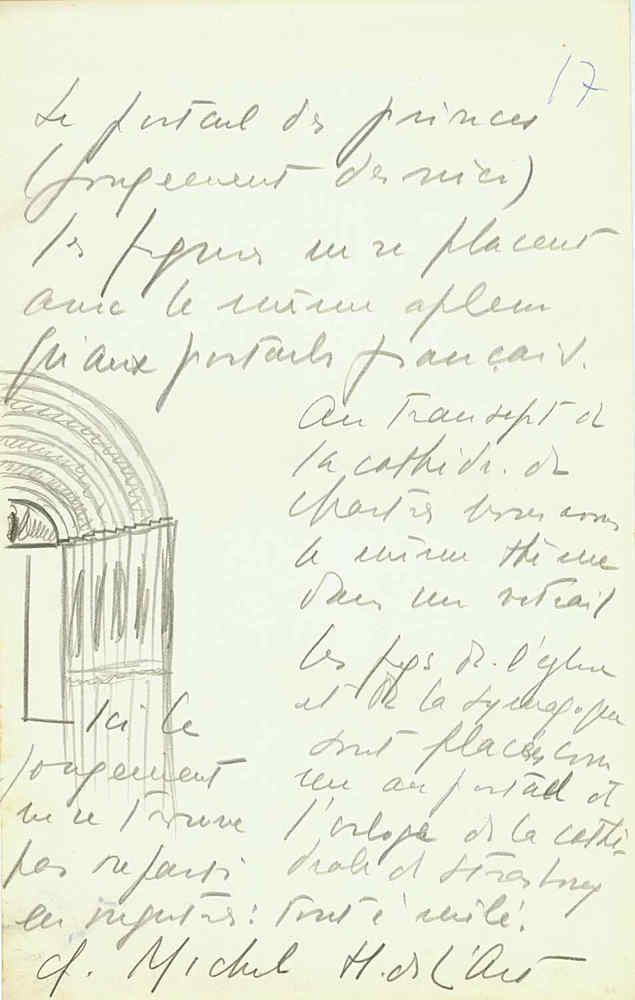 17
Le portail des princes
(Jongeement dernier)
les figures ne se placent
avec le même aplem
qu'aux portails français.
Au transept de
la cathédr. de
Chartres nous avons
le même thème
dans un vitrail
Les figs de l'église
et de la synagogue
sont placées com
me au portail de
l'orloge de la cathé-
drale de Strasbourg
Ici le
jongement
ne se trouve
pas reparti
en registres: tout é mêlé.
cf. Michel H. de L'Art